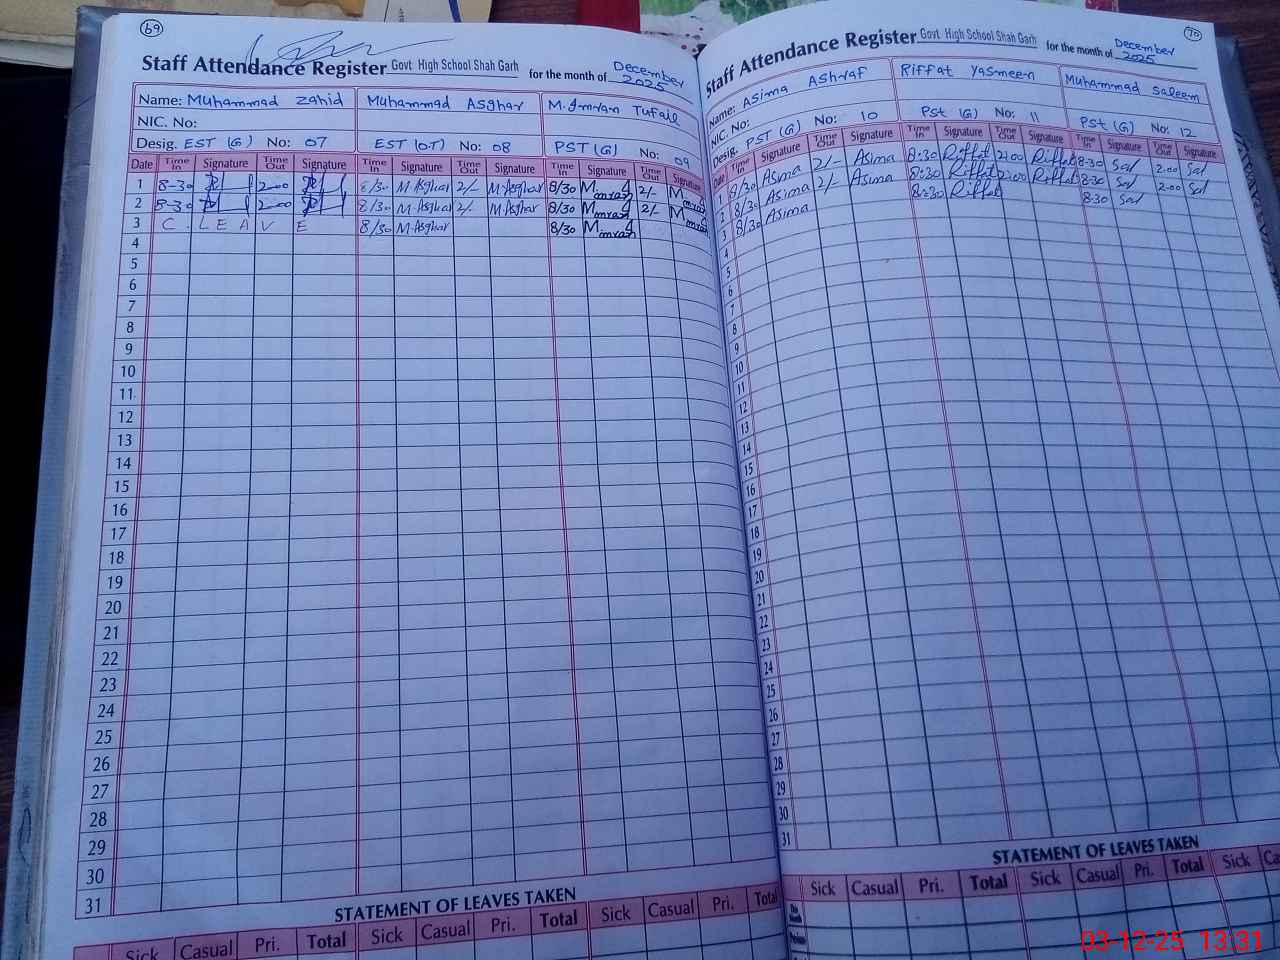 69
Staff Attendance Register Govt High School Shah Garh for the month of December 2025
Name: Muhammad Zahid Muhammad Asghar M. Imran Tufail
NIC. No:
Desig. EST (G) No: 07 EST (OT) No: 08 PST (G) No: 09
Date Time In Signature Time Out Signature Time In Signature Time Out Signature Time In Signature Time Out Signature
1 8-30 2-00 8/30 M.Asghar 2/- M.Asghar 8/30 M Imran 2/- M Imran
2 8-30 2-00 8/30 M.Asghar 2/- M.Asghar 8/30 M Imran 2/- M Imran
3 C. LEAVE 8/30 M.Asghar 8/30 M Imran
4
5
6
7
8
9
10
11
12
13
14
15
16
17
18
19
20
21
22
23
24
25
26
27
28
29
30
31
STATEMENT OF LEAVES TAKEN
Sick Casual Pri. Total Sick Casual Pri. Total Sick Casual Pri. Total
70
Staff Attendance Register Govt High School Shah Garh for the month of December 2025
Name: Asima Ashraf Riffat Yasmeen Muhammad Saleem
NIC. No:
Desig. PST (G) No: 10 Pst (G) No: 11 Pst (G) No: 12
Date Time In Signature Time Out Signature Time In Signature Time Out Signature Time In Signature Time Out Signature
1 8/30 Asima 2/- Asima 8:30 Riffat 2:00 Riffat 8-30 Sal 2.00 Sal
2 8/30 Asima 2/- Asima 8:30 Riffat 2:00 Riffat 8-30 Sal 2-00 Sal
3 8/30 Asima 8:30 Riffat 8-30 Sal
4
5
6
7
8
9
10
11
12
13
14
15
16
17
18
19
20
21
22
23
24
25
26
27
28
29
30
31
STATEMENT OF LEAVES TAKEN
Sick Casual Pri. Total Sick Casual Pri. Total Sick
03-12-25 13:31